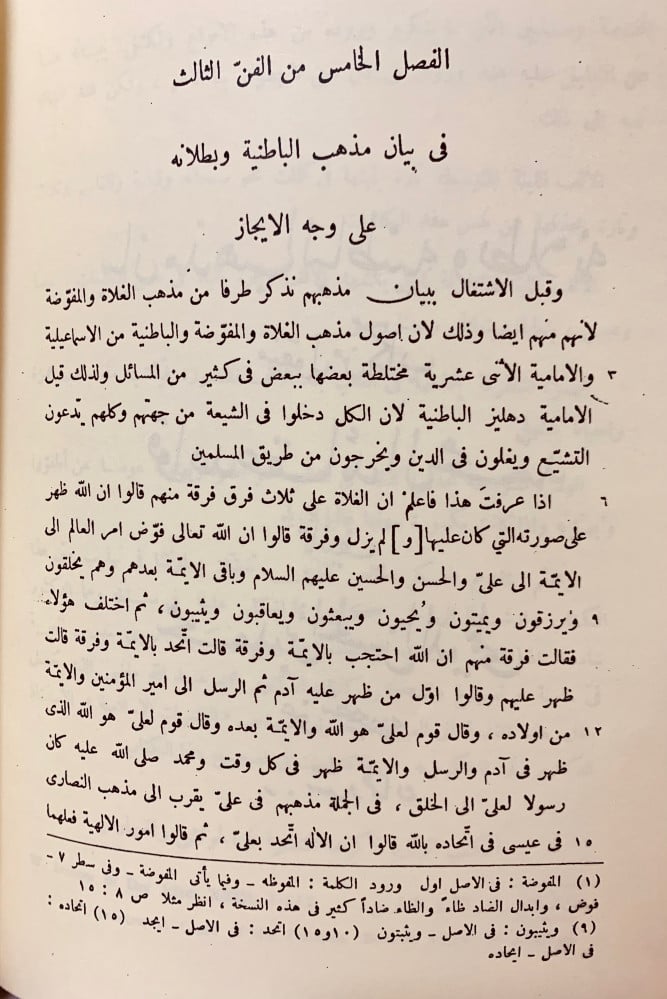 الفصل الخامس من الفنّ الثالث
فى بيان مذهب الباطنية وبطلانه
على وجه الايجاز
وقبل الاشتغال ببيان مذهبهم نذكر طرفا من مذهب الغلاة والمفوّضة
لانهم منهم ايضا وذلك لان اصول مذهب الغلاة والمفوّضة والباطنية من الاسماعيلية
٣ والامامية الأثنى عشرية مختلطة بعضها ببعض فى كثير من المسائل ولذلك قيل
الامامية دهليز الباطنية لان الكل دخلوا فى الشيعة من جهتهم وكلهم يدّعون
التشيّع ويغلون فى الدين ويخرجون من طريق المسلمين
٦ اذا عرفتَ هذا فاعلم ان الغلاة على ثلاث فرق فرقة منهم قالوا ان الله ظهر
على صورته التي كان عليها [و] لم يزل وفرقة قالوا ان الله تعالى فوّض امر العالم الى
الايمّة الى علىّ والحسن والحسين عليهم السلام وباقى الايمّة بعدهم وهم يخلقون
٩ ويرزقون ويميتون ويُحيون ويبعثون ويعاقبون ويثيبون ، ثم اختلف هؤلاء
فقالت فرقة منهم ان الله احتجب بالايمّة وفرقة قالت اتّحد بالايمّة وفرقة قالت
ظهر عليهم وقالوا اوّل من ظهر عليه آدم ثم الرسل الى امير المؤمنين والايمّة
١٢ من اولاده ، وقال قوم لعلىّ هو الله والايمّة بعده وقال قوم لعلىّ هو الله الذى
ظهر فى آدم والرسل والايمّة ظهر فى كل وقت ومحمد صلى الله عليه كان
رسولا لعلىّ الى الخلق ، فى الجملة مذهبهم فى علىّ يقرب الى مذهب النصارى
١٥ فى عيسى فى اتّحاده بالله قالوا ان الاله اتّحد بعلىّ ، ثم قالوا امور الالهية فعلهما
(١) المفوضة : فى الاصل اول ورود الكلمة : المفوظه – وفيما يأتى المفوضة – وفى سطر ٧ –
فوض ، وابدال الضاد ظاءً والظاء ضاداً كثير فى هذه النسخة ، انظر مثلا ص ٨ : ١٥
(٩) ويثيبون : فى الاصل – ويثبتون (١٠و١٥) اتحد : فى الاصل – ايجد (١٥) اتحاده :
فى الاصل – ايحاده